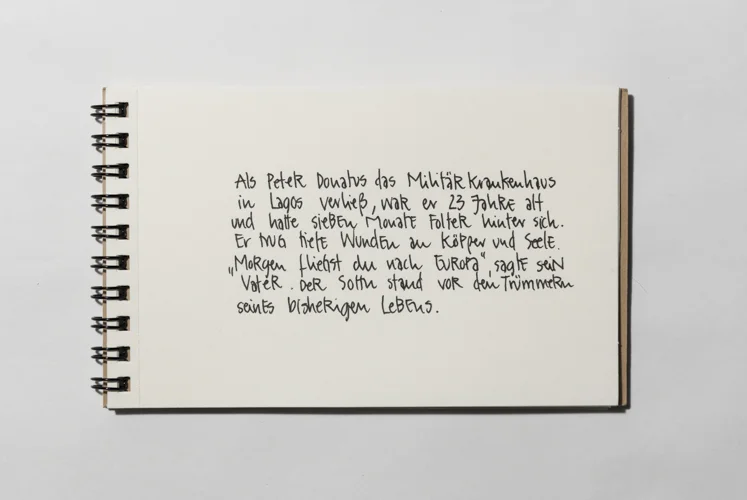 Als Peter Donatus das Militärkrankenhaus
in Lagos verließ, war er 23 Jahre alt
und hatte sieben Monate Folter hinter sich.
Er trug tiefe Wunden an Köpper und Seele.
„Morgen fliegst du nach Europa", sagte sein
Vater. Der Sohn stand vor den Trümmern
seines bisherigen Lebens.